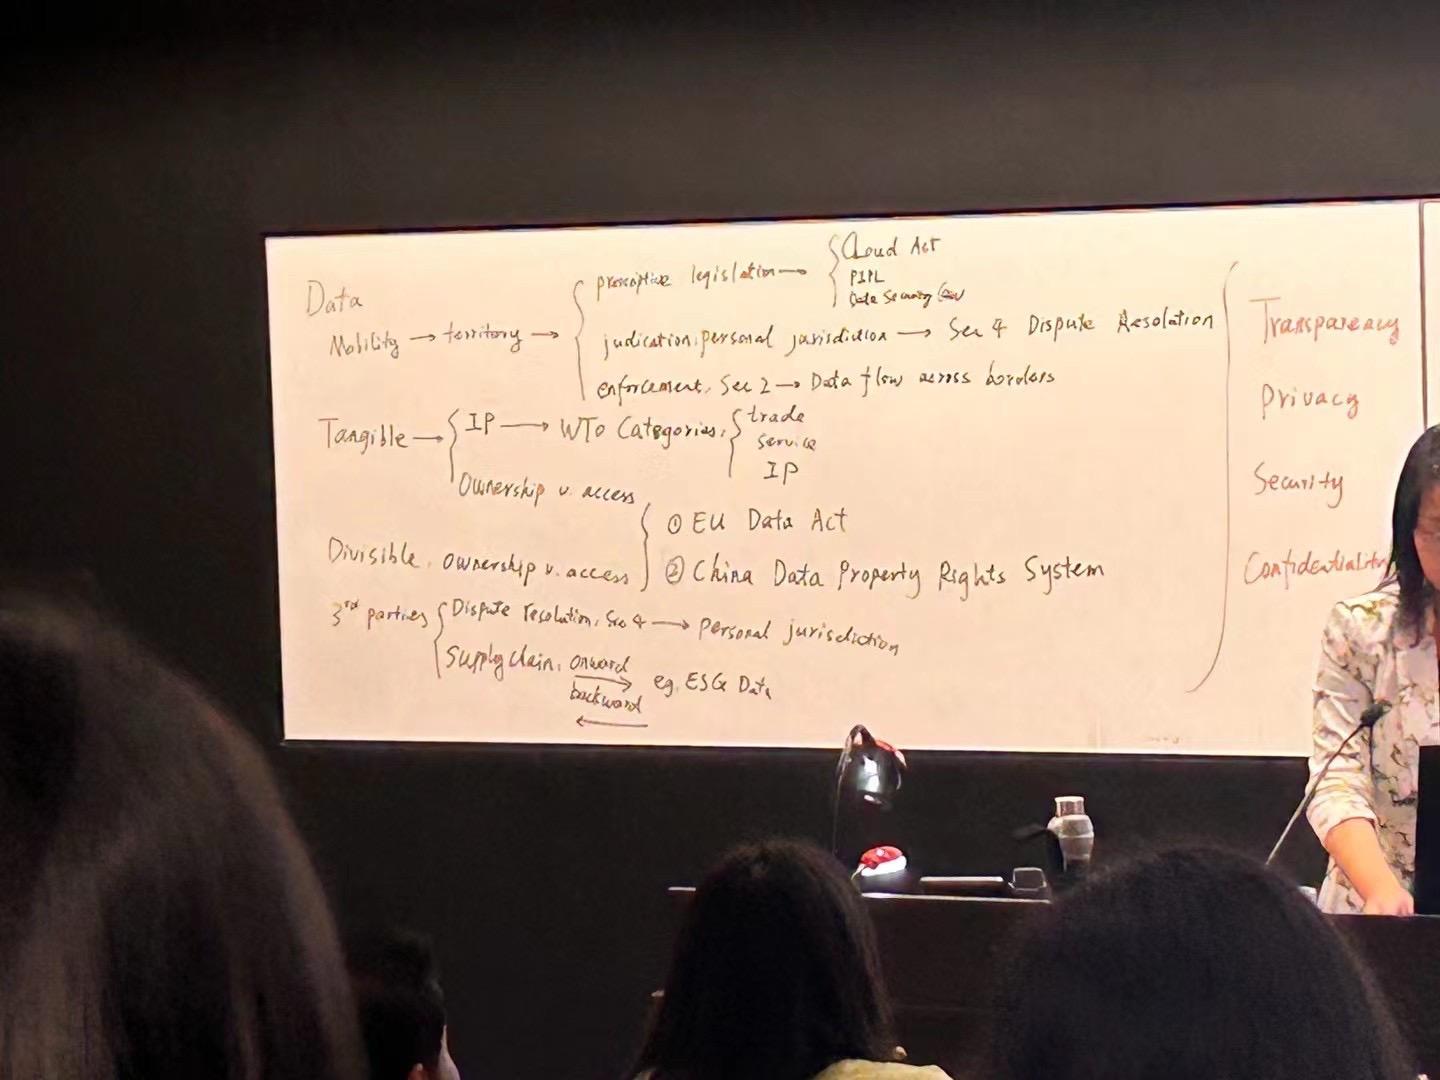 Data
Mobility → territory →
prescriptive legislation →
Cloud Act
PIPL
Data Security Law
judication, personal jurisdiction → Sec 4 Dispute Resolution
enforcement, Sec 2 → Data flow across borders
Tangible →
IP → WTO Categories,
trade
service
IP
Ownership v. access
Divisible, ownership v. access
① EU Data Act
② China Data Property Rights System
3rd parties
Dispute resolution, Sec 4 → personal jurisdiction
Supply chain, onward → eg. ESG Data
backward ←
Transparency
Privacy
Security
Confidentiality